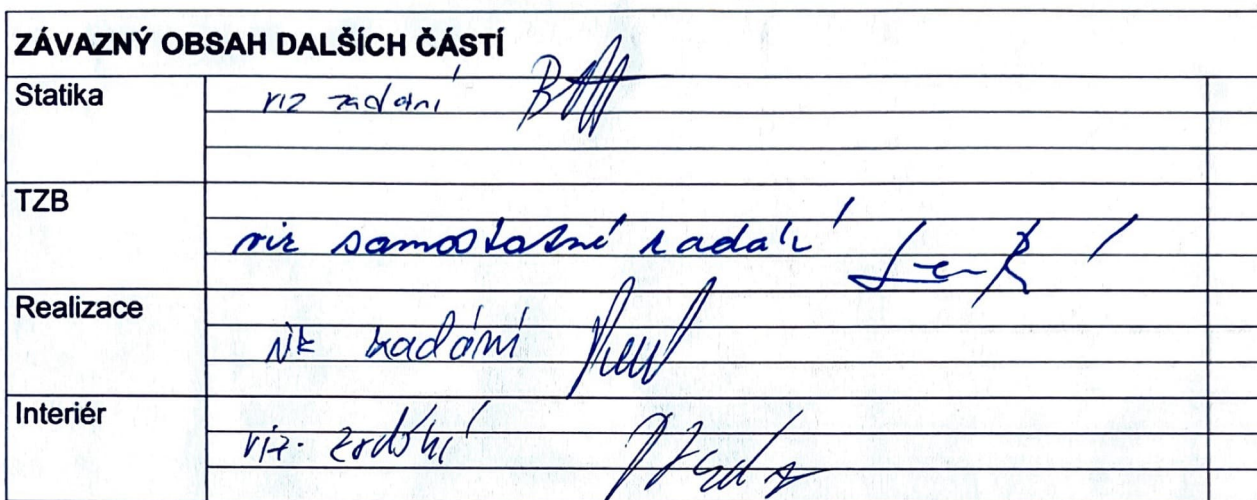 ZÁVAZNÝ OBSAH DALŠÍCH ČÁSTÍ
Statika
viz zadání
TZB
viz samostatné zadání
Realizace
viz zadání
Interiér
viz. zadání